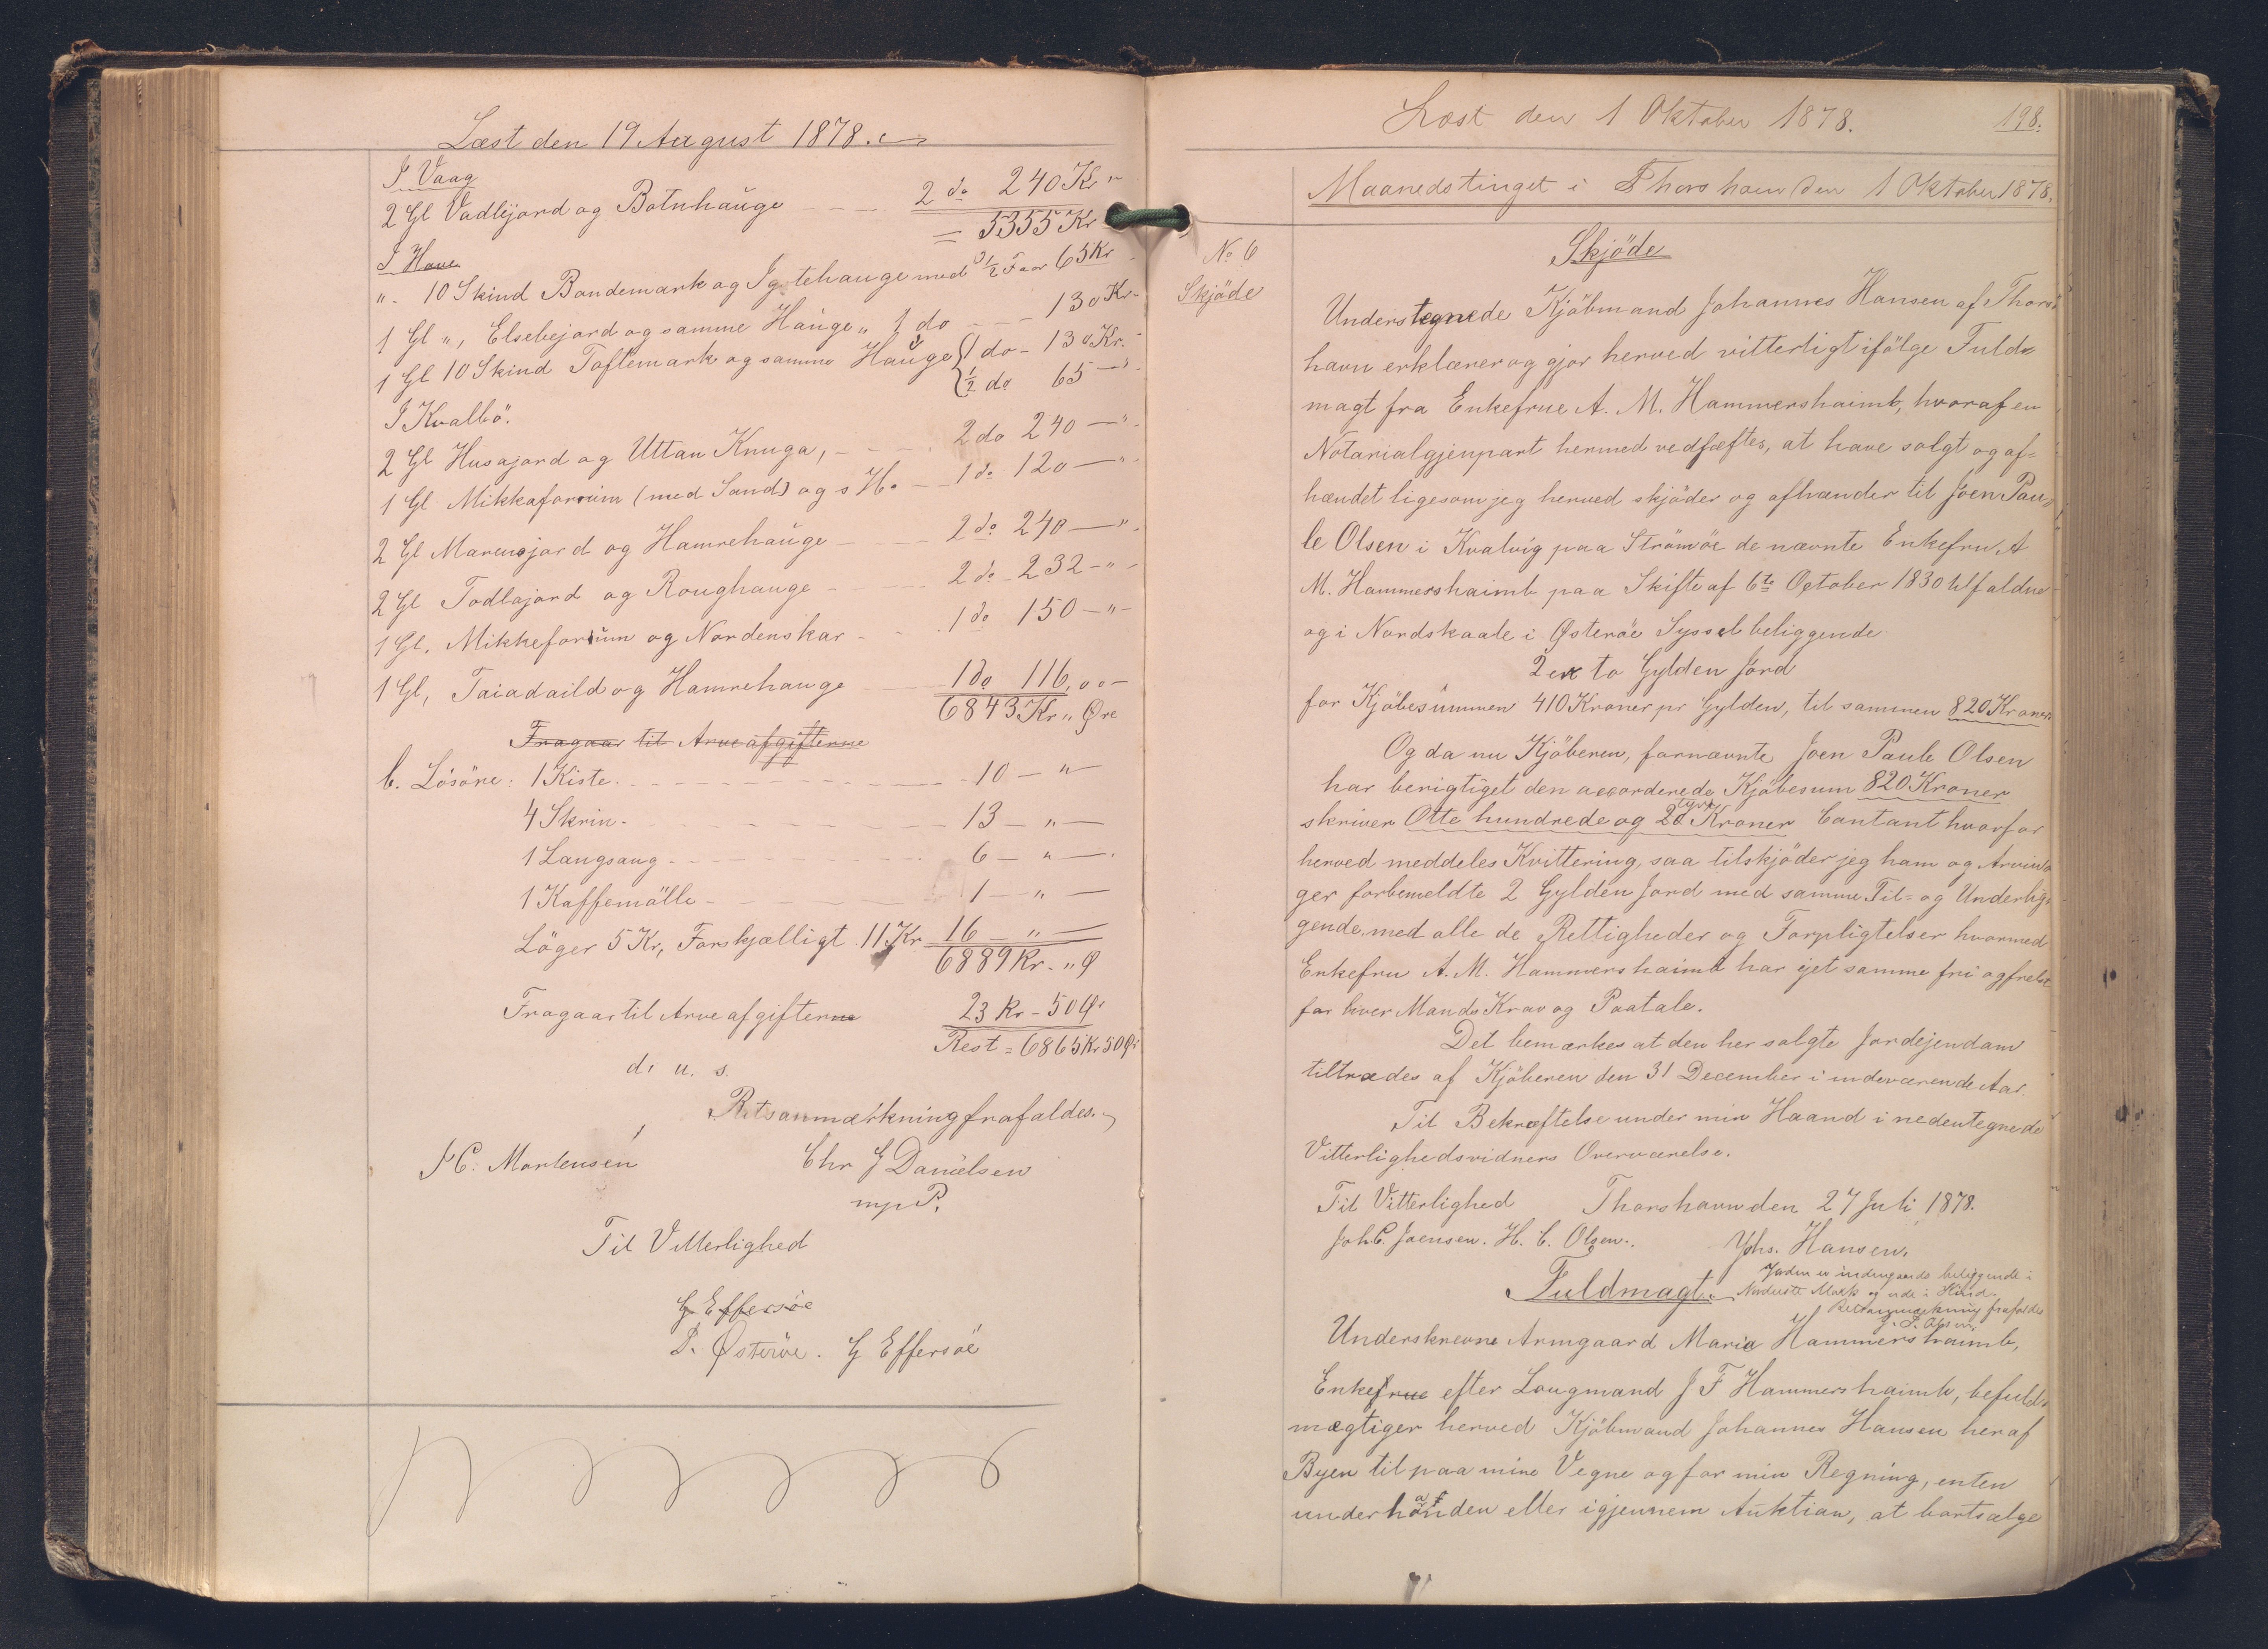 Læst den 19 August 1878.
I Vaag
2 Gl Vadlejord og Botnhauge 2 do 240 Kr "
= 5355 Kr
I Hove
". 10 Skind Bondemark og Igttehauge med ½ Faar 65 Kr
1 Gl ", Elsebejord og samme Hauge " 1 do 130 Kr.
1 Gl 10 Skind Toftemark og samme Hauge { 1 do - 130 Kr.
½ do 65 — "
I Kvalbö.
2 Gl Husajord og Uttan Knuga, 2 do 240 — "
1 Gl Mikkaforuim (med Sand) og s H. 1 do 120 — "
2 Gl Marensjord og Hamrehauge 2 do 240 — "
2 Gl Todlajord og Roughauge 2 do 232 - " -
1 Gl. Mikkeforuim og Nordenskar 1 do 150 — " —
1 Gl, Taiadaild og Hamrehauge 1 do 116,00 —
6843 Kr. " Øre
Fragaar til Arveafgifterne
b. Lösöre: 1 Kiste. 10 — " —
4 Skrin. 13 — " —
1 Langsaug 6 — " —
1 Kaffemölle 1 — " —
Löger 5 Kr, Forskjælligt 11 Kr 16 — " —
6889 Kr. " Ø
Fragaar til Arveafgifterne 23 Kr - 50 Ø.
Rest = 6865 Kr 50 Ø.
d. u. s.
Retsanmærkning frafaldes.
J C. Mortensen Chr J Danielsen
mp P.
Til Vitterlighed
G Effersöe
P. Østeröe. G Effersöe
Læst den 1 Oktober 1878. 198.
Maanedstinget i Thorshavn den 1 Oktober 1878.
No 6
Skjöde
Skjöde
Understegnede Kjöbmand Johannes Hansen af Thors
havn erklærer og gjör herved vitterligt ifölge Fuld=
magt fra Enkefrue A. M. Hammershaimb, hvoraf en
Notarialgjenpart hermed vedfæftes, at have solgt og af=
hændet ligesom jeg herved skjöder og afhænder til Joen Pau
le Olsen i Kvalvig paa Strömöe de nævnte Enkefru A
M. Hammershaimb paa Skifte af 6te October 1830 tilfaldne
og i Nordskaale i Østeröe Syssel beliggende
2 er to Gylden Jord
for Kjöbesummen 410 Kroner pr Gylden, til sammen 820 Kroner
Og da nu Kjöberen, fornævnte Joen Paule Olsen
har berigtiget den accorderede Kjöbesum 820 Kroner
skriver Otte hundrede og 20 tyve Kroner Contant hvorfor
herved meddeles Kvittering, saa tilskjöder jeg ham og Arvin
ger forbemeldte 2 Gylden Jord med samme Til= og Underlig=
gende, med alle de Rettigheder og Forpligtelser hvormed
Enkefru A. M. Hammershaimb har ejet samme fri og frelst
for hver Mands Krav og Paatale.
Det bemærkes at den her solgte Jordejendom
tiltrædes af Kjöberen den 31 December i indeværende Aar.
Til Bekræftelse under min Haand i nedentegnede
Vitterlighedsvidners Overværelse.
Til Vitterlighed Thorshavn den 27 Juli 1878.
Joh. C. Joensen. H. C. Olsen. Johs. Hansen.
Jorden er indengaards beliggende i
Fuldmagt. Nordeste Mark og ude i
Retsanmærkning frafaldes
J. P. Olsen.
Underskrevne Armgaard Maria Hammershaimb,
Enkefrue efter Laugmand J F Hammershaimb, befuld=
mægtiger herved Kjöbmand Johannes Hansen her af
Byen til paa mine Vegne og for min Regning, enten
underhaanden eller igjennem Auktion, at bortsælge